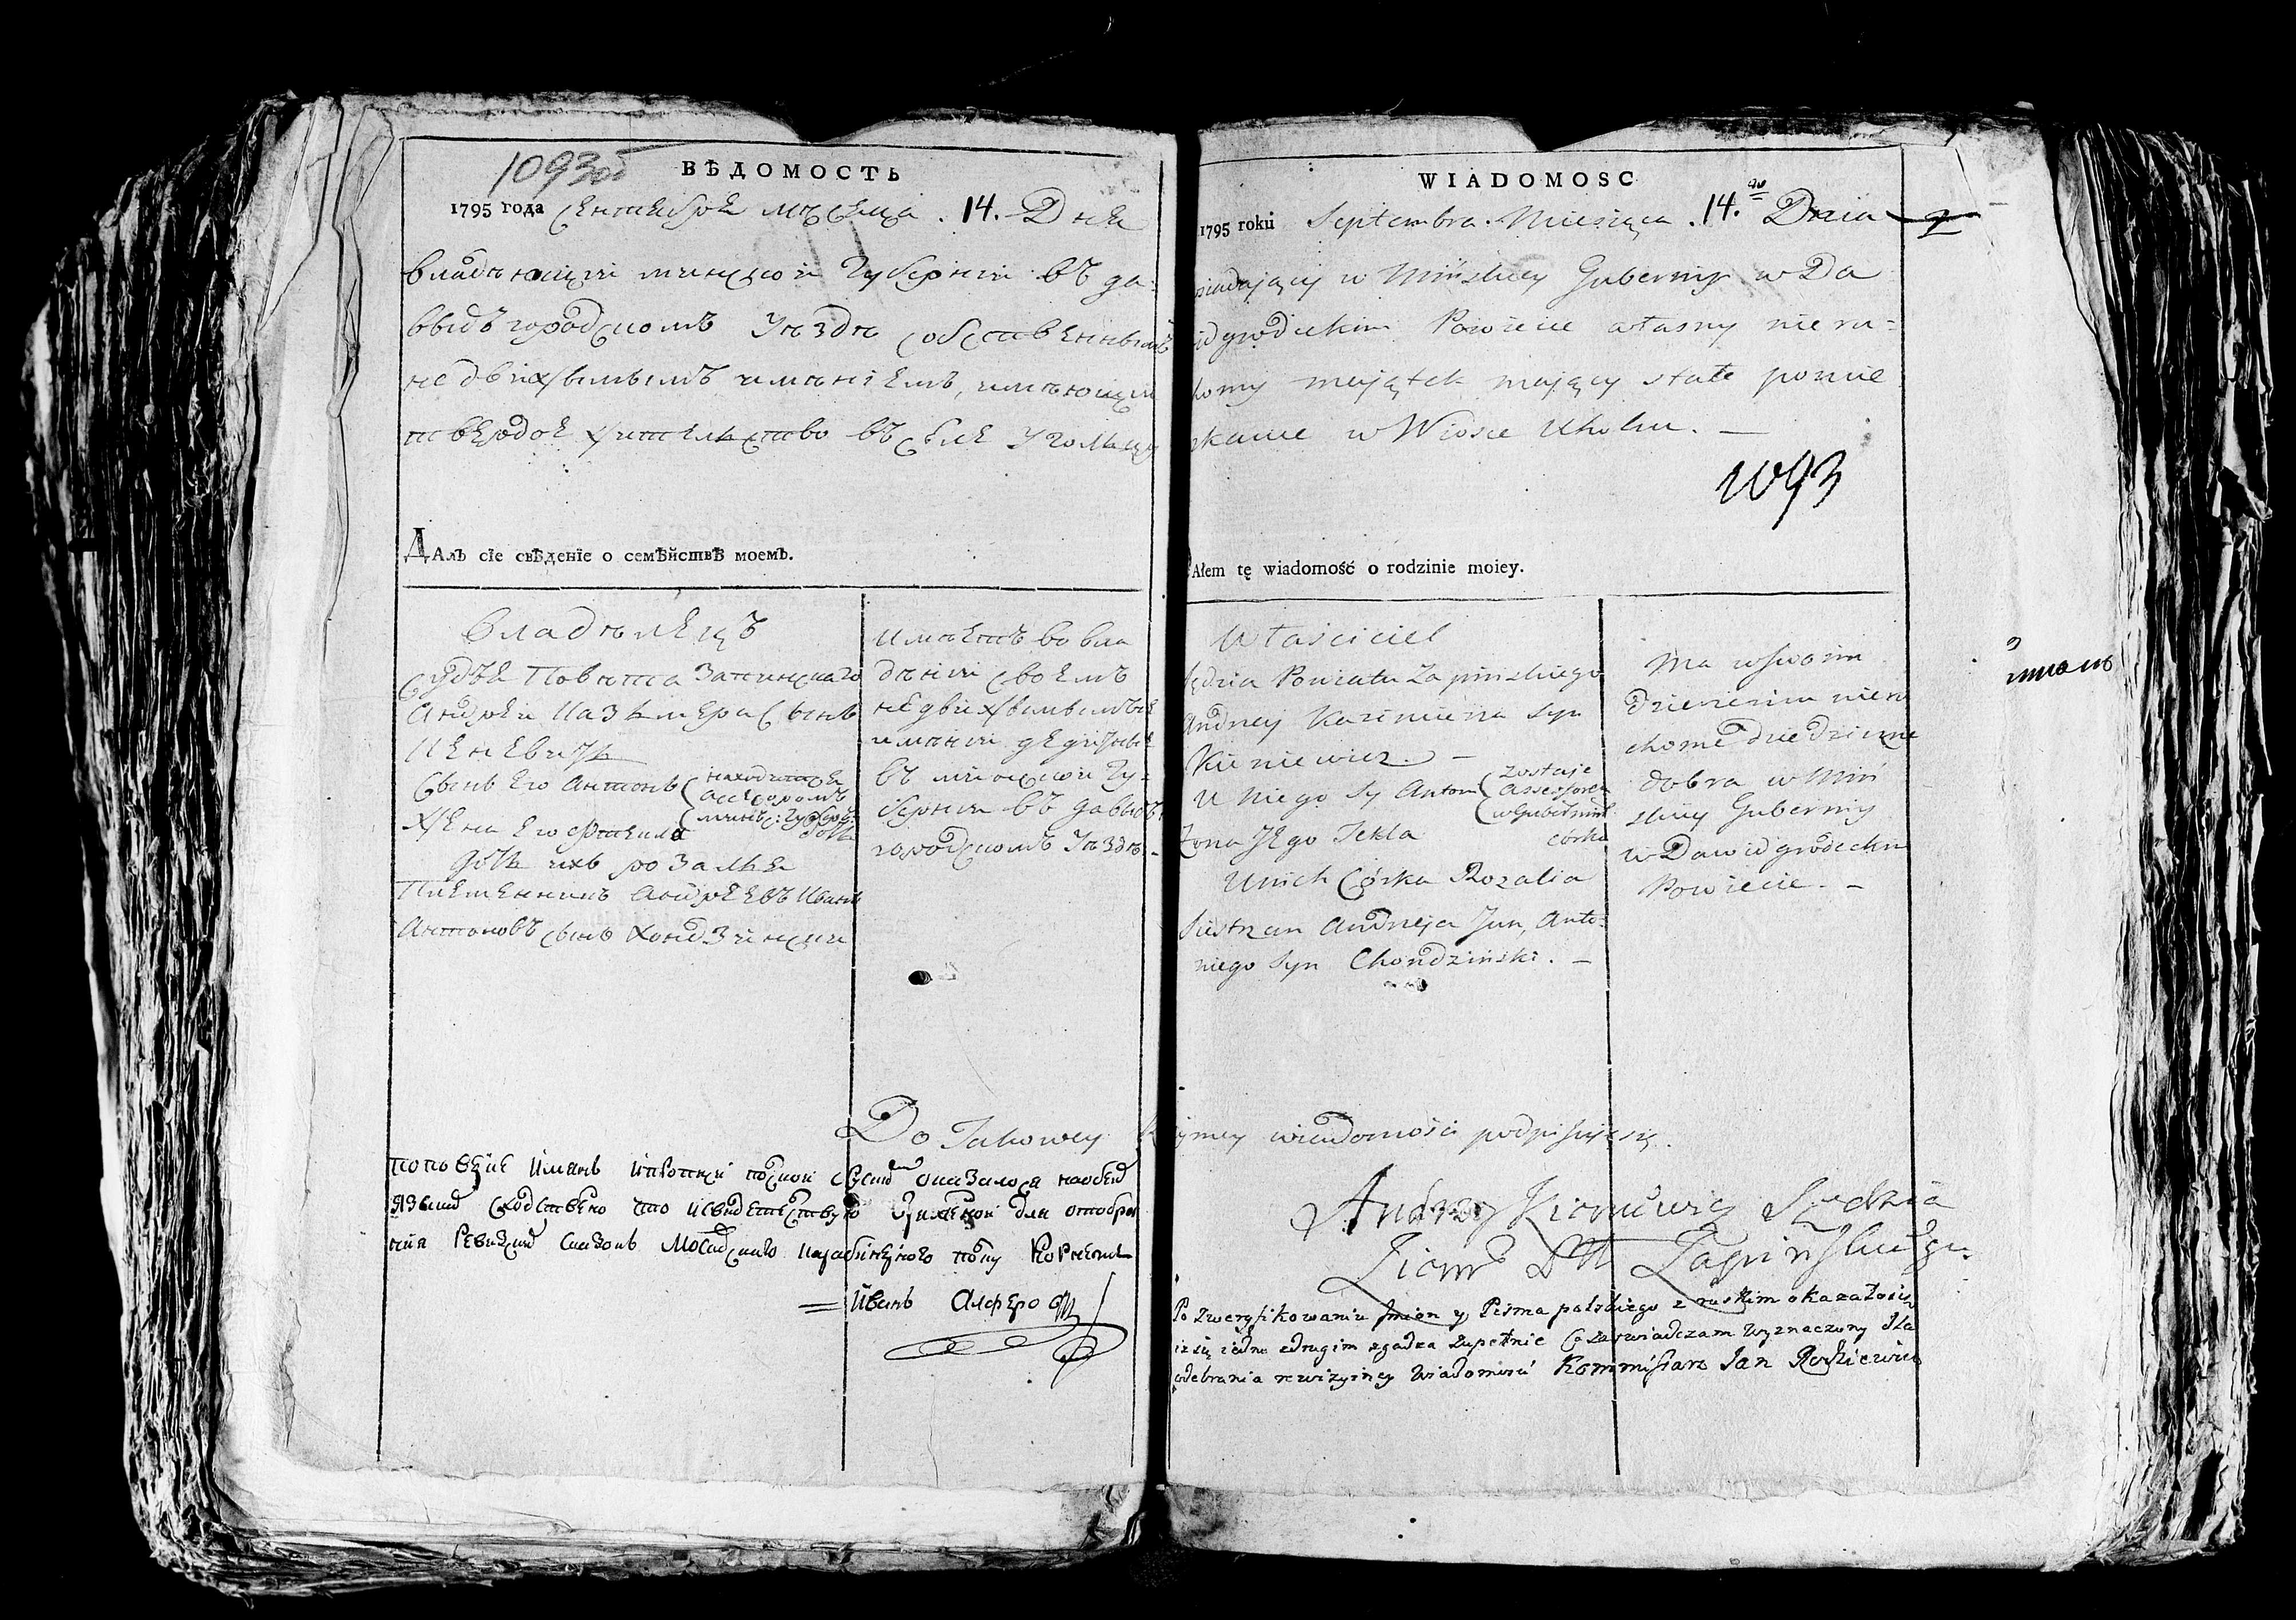 1093об
ВѢДОМОСТЬ
1795 года Сентября мѣсяца . 14. Дня
владѣющій минской Губерніи въ да=
выдъгородскомъ Уѣздѣ собственнымъ
недвижымымъ имѣніемъ, имѣющій
твердое жительство въ селе Угольцу
ДАлЪ сїе свѣденїе о семѣйствѣ моемъ.
Владѣлецъ
Судья Повета Запинскаго
Андрей Казимера сынъ
Кеневичь
Сынъ Его Антонъ (находится
асесоромъ
Жена Его Фтекла
дочь ихъ розалья
Племенникъ Андреевъ Иванъ
Антоновъ сынъ Хондзински
Имѣетъ во вла
дѣніи своемъ
недвижымымые
имѣніи дедичные
въ минской Гу=
берніи въ давыдъ
городскомъ Уѣздѣ. –
WIADOMOSC
1795 rokú Septembra. Miesiąca . 14.go Dnia
siadający w Mińskiey Gubernÿi w Da
idgrodzkim Powiecie własny nieru=
homy majątek mający stałe pomie
zkanie w Wiosce Uholcu. —
1093
Ałem tę wiadomość o rodzinie moiey.
Właściciel
Sędzia Powiatu Zapińskiego
Andrzej Kazimierza Syn
Kieniewicz. —
U Niego Sy Anton (zostaje
assessorem
Zona JEgo Tekla córka
Unich Córka Rozalia
Siestrzan Andrzeja Jan, Anto=
niego Syn Chondziński. —
Ma wswoim
dziérzeniu nieru
chome dziedziczne
dobra w Miń
skiey Guberniy
w Dawidgrodeckim
Powiecie. —
Do Takowey wiadomości podpisuję się.
Andrzey Kieniewicz Sędzia
Ziem Ptt Zapińskiego
языка сходственно что исвидетелствую
Иванъ Алферов
Po zweryfikowaniu Jmion y Pisma polskiego z ruskim okazałosię
iż się iedno zdrugim zgadza zupełnie Co zaświadczam wyznaczony dla
odebrania rewizyiney Wiadomości Kommissarz Jan Roskiewicz